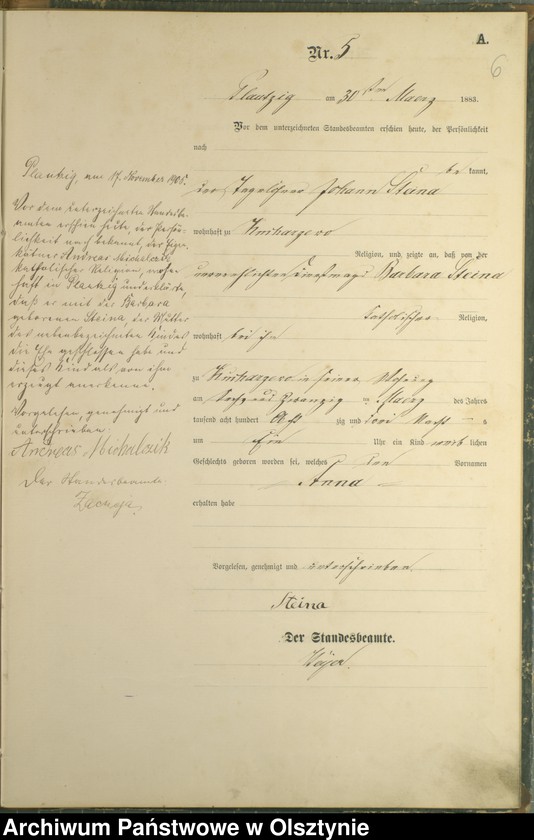 A.
6
Nr. 5
Plautzig am 30ten Maerz 1883.
Vor dem unterzeichneten Standesbeamten erschien heute, der Persönlichkeit
nach
be kannt,
der Johann Steina
wohnhaft zu
Religion, und zeigte an, daß von der
unverehelichten Barbara Steina
katholischer Religion,
wohnhaft bei ihm
zu in seiner Wohnung
am sechs und zwanzig ten Maerz des Jahres
tausend acht hundert Acht zig und drei Nachts
um ein Uhr ein Kind weib lichen
Geschlechts geboren worden sei, welches den Vornamen
Anna
erhalten habe
Vorgelesen, genehmigt und unterschrieben.
Steina
Der Standesbeamte.
Plautzig, am 17. November 1905.
Vor dem unterzeichneten Standesbe-
amten erschien heute, der Persön-
lichkeit nach bekannt, der
Andreas Michalczik
katholischer Religion, wohn-
haft in Plautzig und erklärte,
daß er mit der Barbara
geborenen Steina, der Mutter
des nebenbezeichneten Kindes
die Ehe geschlossen habe und
dieses Kind als von ihm
erzeugt anerkenne.
Vorgelesen, genehmigt und
unterschrieben:
Andreas Michalzik
Der Standesbeamte.
Archiwum Państwowe w Olsztynie